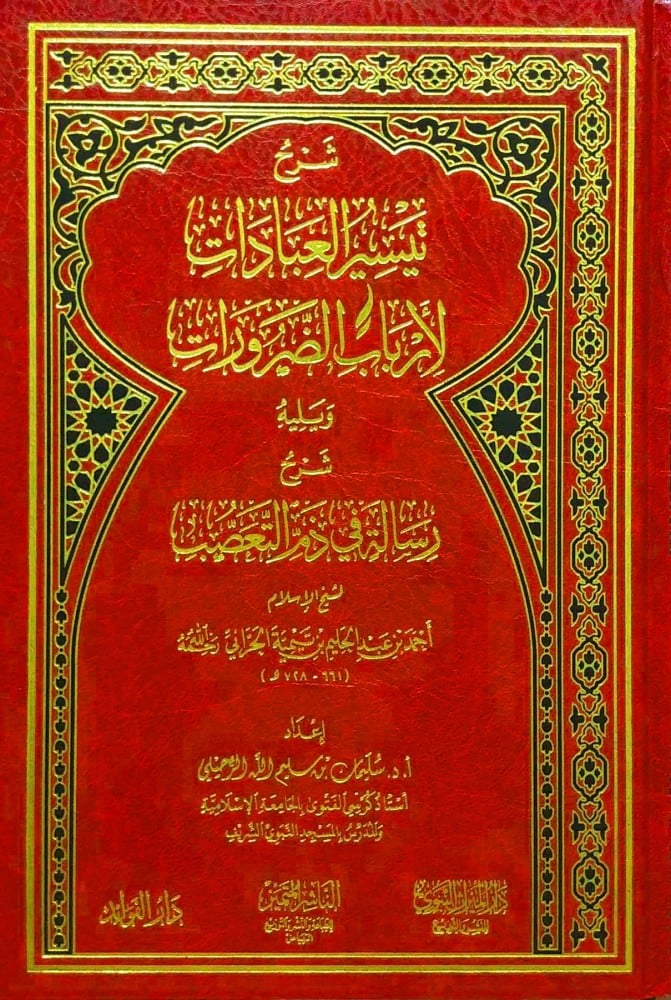 شَرْحُ
تَيْسِيرِ العِبَادَاتِ
لِأَرْبَابِ الضَّرُورَاتِ
وَيَلِيهِ
شَرْحُ
رِسَالَةٍ فِي ذَمِّ التَّعَصُّبِ
لشيخ الإسلام
أَحْمَد بْن عَبْد الحَلِيم بْن تَيْمِيَّة الحَرَّانِيّ رَحِمَهُ اللهُ
(٦٦١ - ٧٢٨ هـ)
إعْدَاد
أ.د. سُلَيْمَان بْن سَلِيم الله الرُّحَيْلِي
أُسْتَاذ كُرْسِيّ الفَتْوَى بِالجَامِعَةِ الإِسْلَامِيَّةِ
وَالمُدَرِّس بِالمَسْجِدِ النَّبَوِيّ الشَّرِيفِ
دار الميراث النبوي
للنشر والتوزيع
الناشر المتميز
للطباعة والنشر والتوزيع
الرياض
دَار